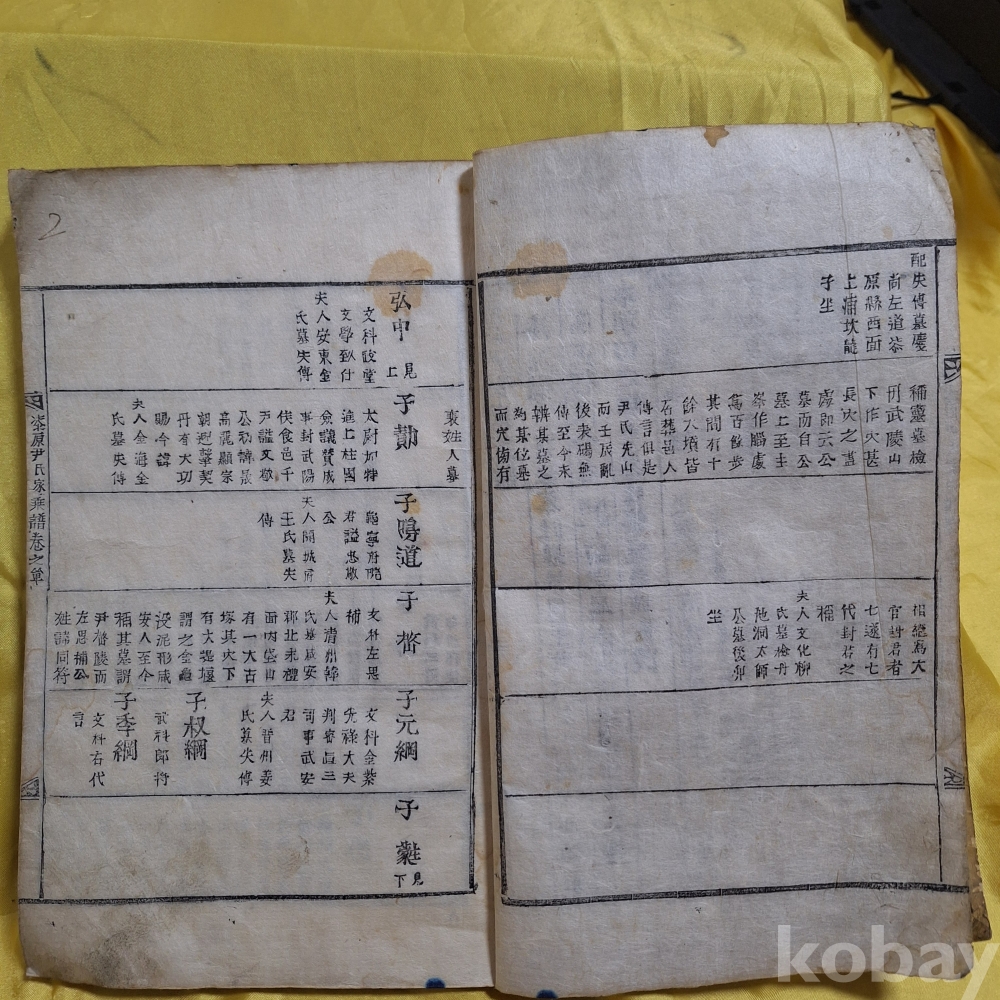 配失傳墓慶
尚左道漆
原縣西面
上浦坎龍
子坐
稱墓墓檢
刑武陵山
下作穴甚
長穴之豊
處即云公
墓而自公
墓上至主
峯作腦處
爲百餘步
其間有十
餘大墳皆
石葬邑人
傳言俱是
尹氏先山
而壬辰亂
後表碣無
傳至今未
辨某墓之
爲某位墓
而穴傍有
官封君者
七遂有七
代封君之
稱
夫人文化柳
氏墓
池洞太師
公墓後卯
坐
弘中
見上
文科政堂
文學致仕
夫人安東金
氏墓失傳
裵姓人墓
子勛
太尉加特
進上柱國
僉議贊成
事封武陽
侯食邑千
戶謚文
公初諱
高麗顯宗
朝
丹有大功
賜今諱
夫人金海金
氏墓失傳
子陽道
君謚忠敬
公
夫人開城府
王氏墓失
傳
子
文科左思
補
夫人淸州韓
氏墓咸安
郡北永禮
面內岱山
有一大古
塚其穴下
有大堤堰
謂之金龜
沒泥形咸
安人至今
稱其墓謂
尹
左思補公
姓諱同符
子元綱
文科金紫
光祿大夫
判密直三
司事武安
君
夫人晉州姜
氏墓失傳
子叔綱
武科郎將
子季綱
文科右代
言
子
見下
漆原尹氏家乘譜卷之單
2
kobay